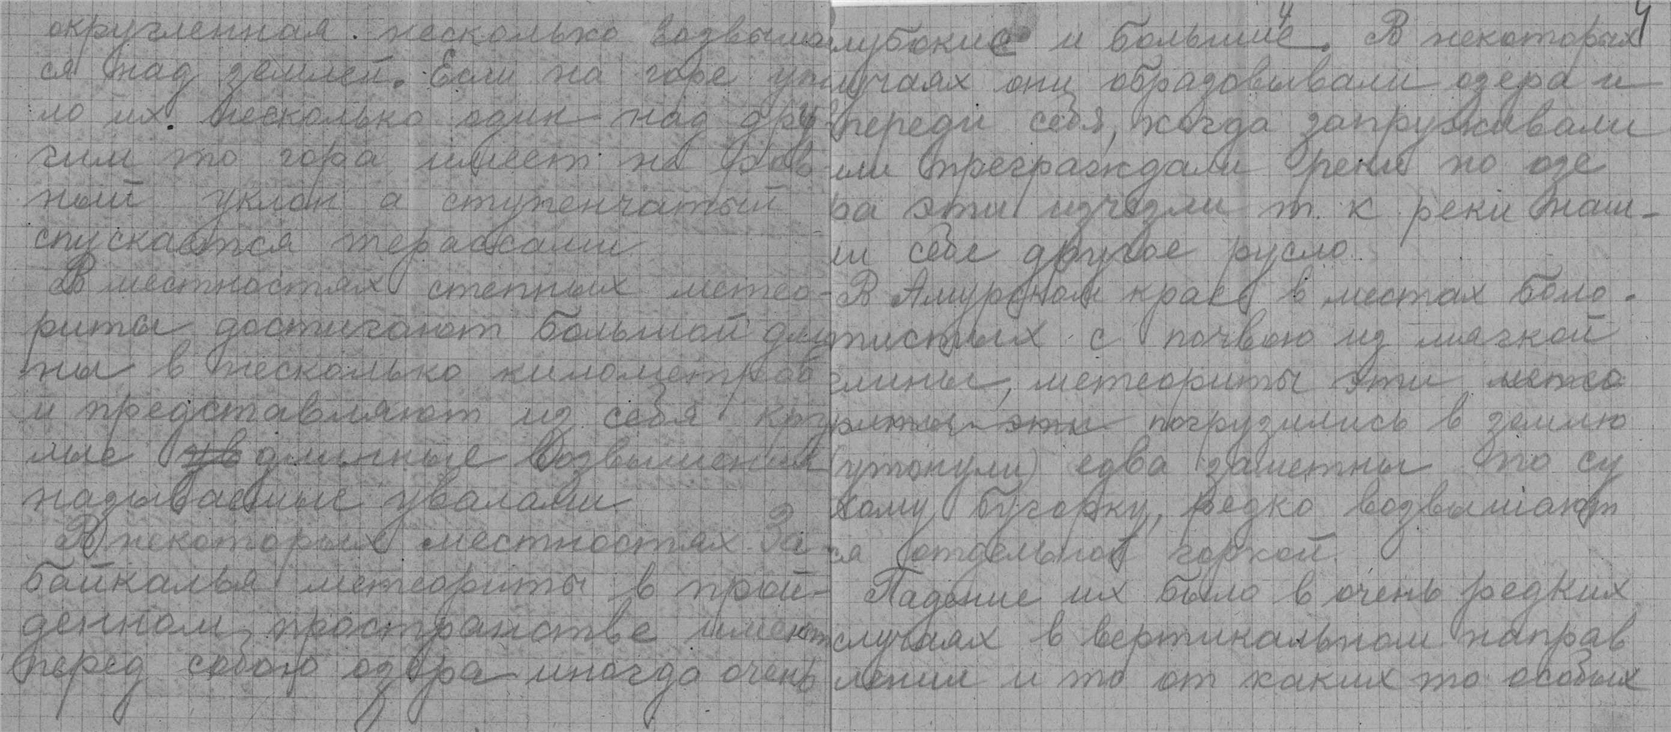 округленная. несколько возвыша
ся над землей. Если на горе упа
ло их. несколько один над дру
гим то гора имеет не рав
ный уклон а ступенчатый
спускается терассами
В местностях степных метео-
риты достигают большой дли
ны в несколько километров
и представляют из себя кру
лые длинные возвышения
называемые увалами
В некоторых местностях За
байкалья метеориты в прой-
денном пространстве имеют
перед собою озера иногда очень
4
глубокие и большие. В некоторых
случаях они образовывали озера и
впереди себя, когда запруживали
или преграждали реки но озе
ра эти изчезли т. к реки наш-
ли себе другое русло
В Амурском крае в местах боло-
тистых с почвою из мягкой
глины, метеориты эти метео
риты эти погрузились в землю
(утонули) едва заметны по су
хому бугорку, редко возвышают
ся отдельной горкой
Падение их было в очень редких
случаях в вертикальном направ
лении и то от каких то особых